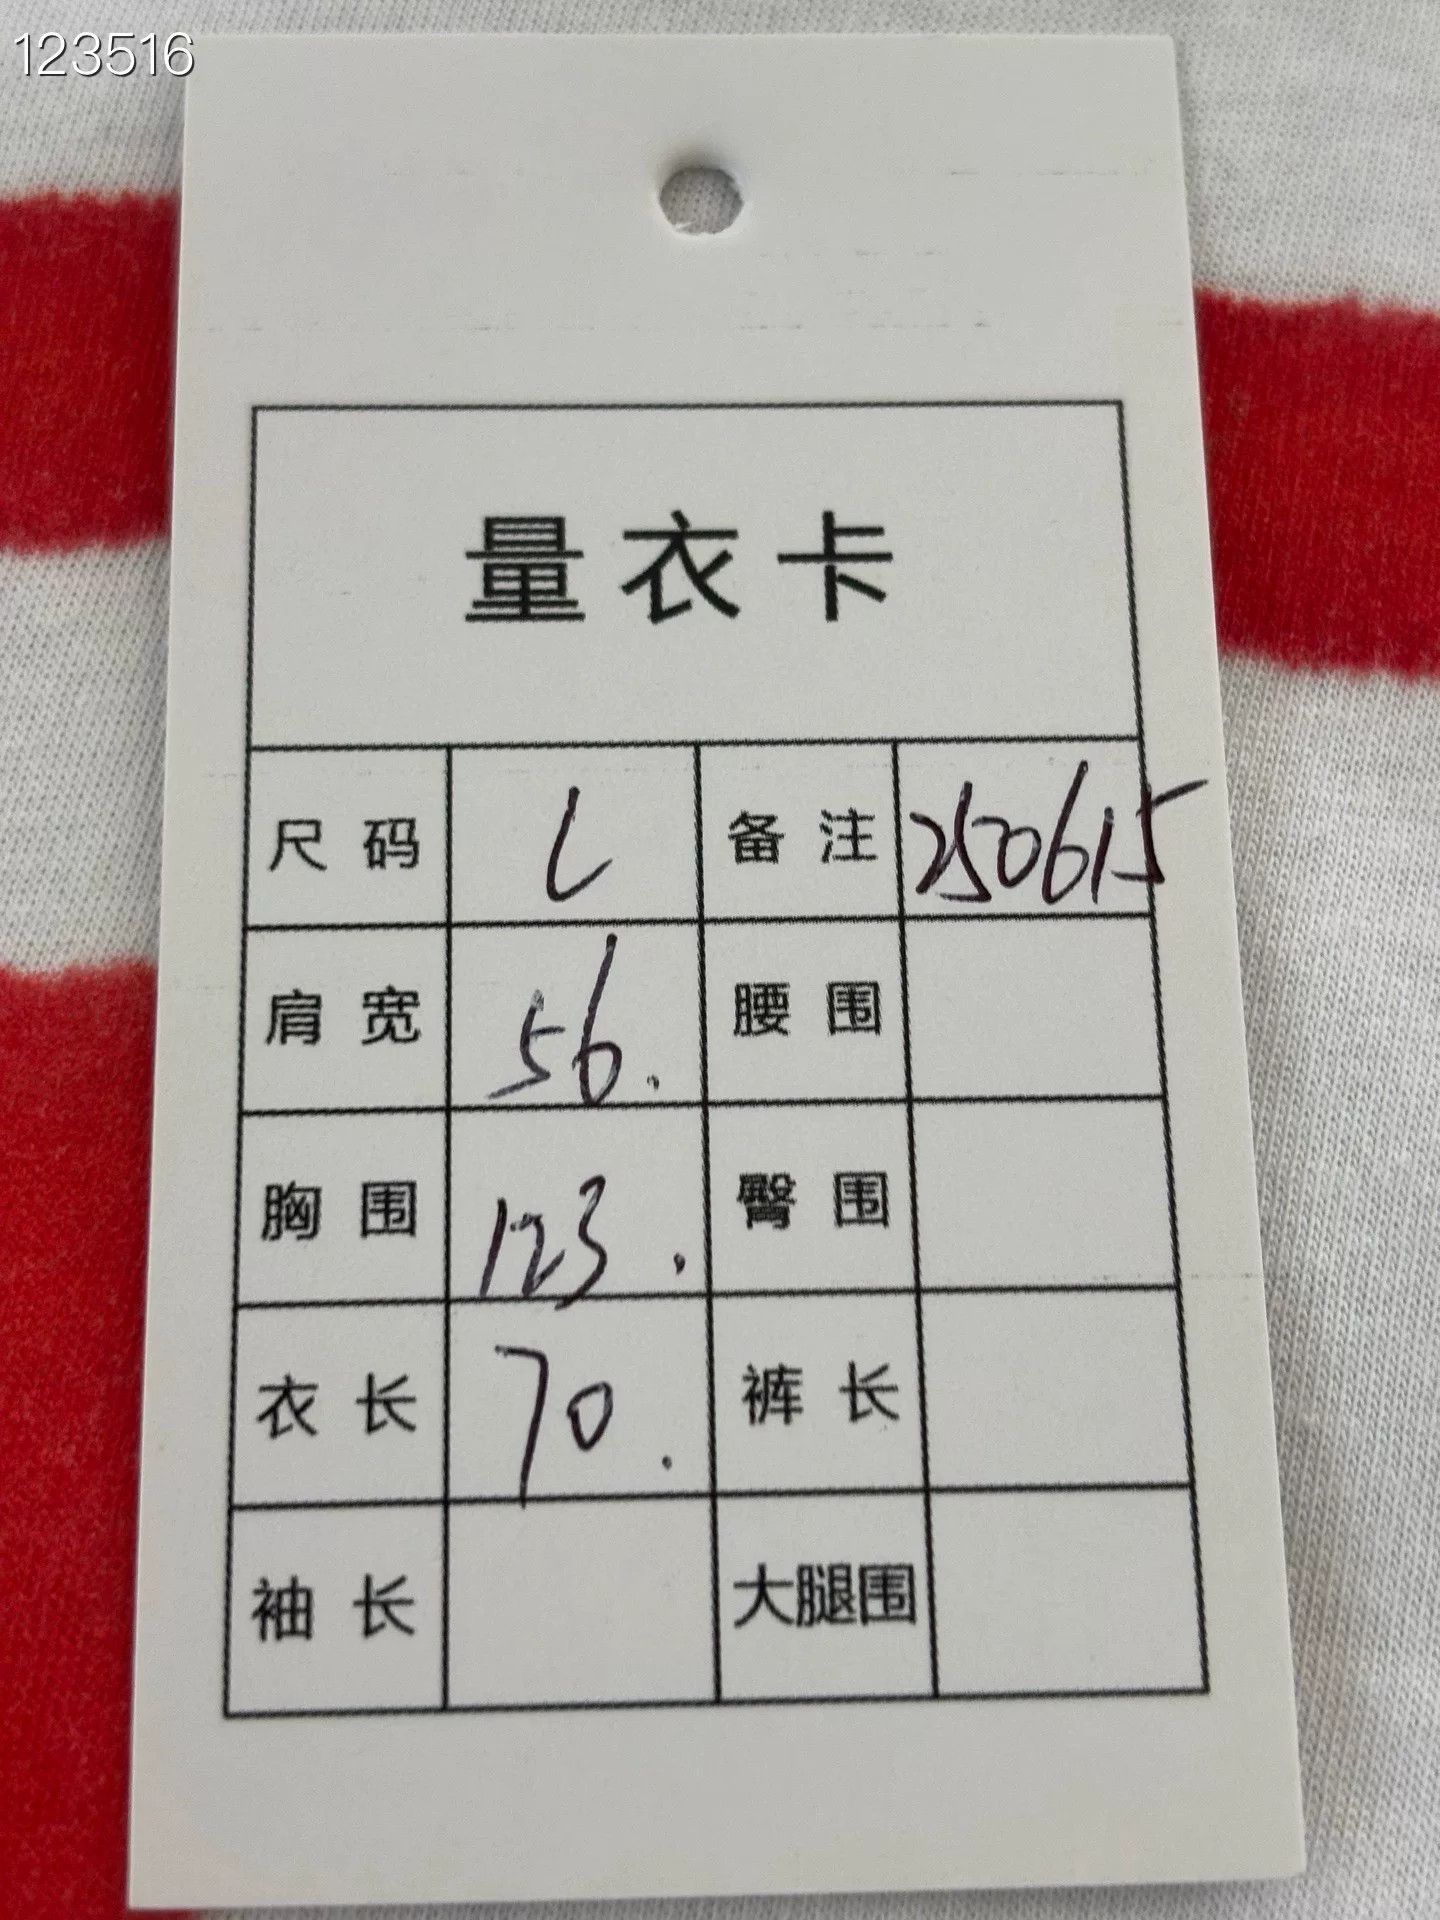 123516
量衣卡
尺码 L 备注 250615
肩宽 56. 腰围
胸围 123. 臀围
衣长 70. 裤长
袖长 大腿围